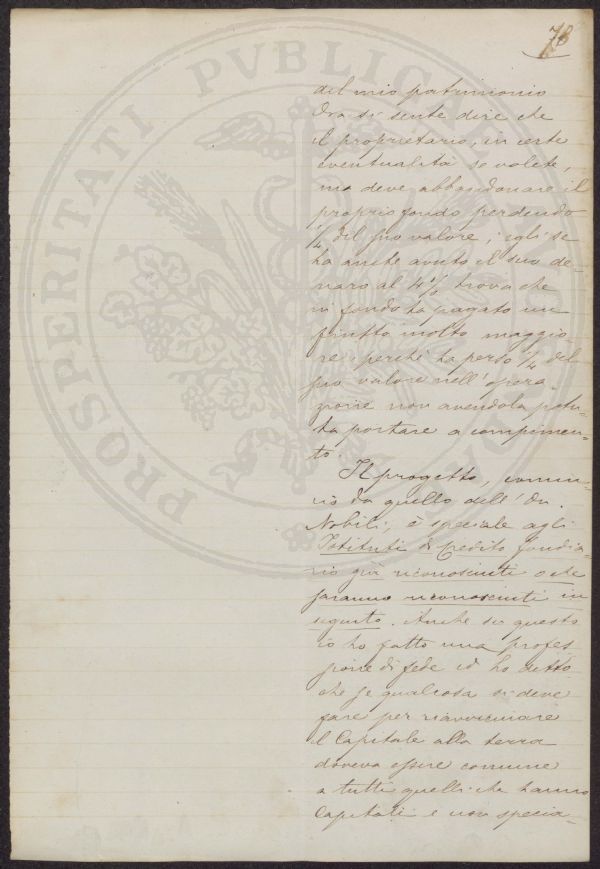 78
PROSPERITATI PVBLICAE
del mio patrimonio
Ora si sente dire che
il proprietario, in certe
eventualità se volete,
ma deve abbandonare il
proprio fondo perdendo
1/4 del suo valore; egli se
ha anche avuto il suo de-
naro al 4% trova che
in fondo ha pagato un
frutto molto maggio-
re, perchè ha perso 1/4 del
suo valore nell'opera-
zione non avendola potu-
ta portare a compimen-
to.
Il progetto,
da quello dell'On.
Nobili, è speciale agli
Istituti di Credito fondia-
rio già riconosciuti o che
saranno riconosciuti in
seguito. Anche su questo
io ho fatto una profes-
sione di fede ed ho detto
che se qualcosa si deve
fare per riavvicinare
il Capitale alla terra
doveva essere comune
a tutti quelli che hanno
Capitali e non specia-